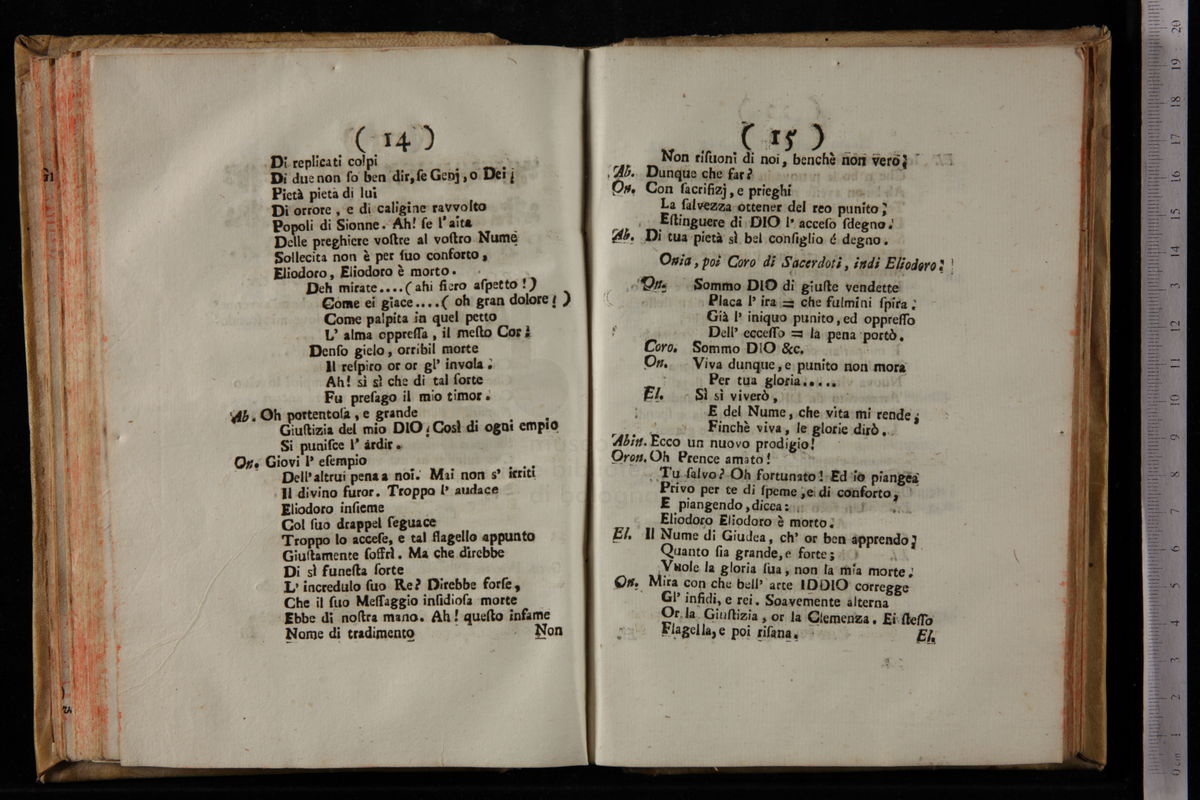 ( 14 )
Di replicati colpi
Di due non ſo ben dir, ſe Genj, o Dei;
Pietà pietà di lui
Di orrore, e di caligine ravvolto
Popoli di Sionne. Ah! ſe l'aita
Delle preghiere voſtre al voſtro Nume
Sollecita non è per ſuo conforto,
Eliodoro, Eliodoro è morto.
Deh mirate....( ahi fiero aſpetto!)
Come ei giace....( oh gran dolore! )
Come palpita in quel petto
L' alma oppreſſa, il meſto Cor!
Denſo gielo, orribil morte
Il reſpiro or or gl' invola.
Ah! sì sì che di tal ſorte
Fu preſago il mio timor.
Ab. Oh portentoſa, e grande
Giuſtizia del mio DIO! Così di ogni empio
Si puniſce l' ardir.
On. Giovi l' eſempio
Dell'altrui pena a noi. Mai non s' irriti
Il divino furor. Troppo l' audace
Eliodoro inſieme
Col ſuo drappel ſeguace
Troppo lo acceſe, e tal flagello appunto
Giuſtamente ſoffrì. Ma che direbbe
Di sì funeſta ſorte
L' incredulo ſuo Re? Direbbe forſe,
Che il ſuo Meſſaggio inſidioſa morte
Ebbe di noſtra mano. Ah! queſto infame
Nome di tradimento
Non
( 15 )
Non riſuoni di noi, benchè non vero.
Ab. Dunque che far?
On. Con ſacrifizj, e prieghi
La ſalvezza ottener del reo punito;
Eſtinguere di DIO l' acceſo ſdegno.
Ab. Di tua pietà sì bel conſiglio é degno.
Onia, poi Coro di Sacerdoti, indi Eliodoro.
On. Sommo DIO di giuſte vendette
Placa l' ira = che fulmini ſpira;
Già l' iniquo punito, ed oppreſſo
Dell' ecceſſo = la pena portò.
Coro. Sommo DIO &c.
On. Viva dunque, e punito non mora
Per tua gloria.....
El. Sì sì viverò,
E del Nume, che vita mi rende,
Finchè viva, le glorie dirò.
Abin. Ecco un nuovo prodigio!
Oron. Oh Prence amato!
Tu ſalvo? Oh fortunato! Ed io piangea
Privo per te di ſpeme, e di conforto,
E piangendo, dicea:
Eliodoro Eliodoro è morto.
El. Il Nume di Giudea, ch' or ben apprendo,
Quanto ſia grande, e forte;
Vuole la gloria ſua, non la mia morte.
On. Mira con che bell' arte IDDIO corregge
Gl' infidi, e rei. Soavemente alterna
Or la Giuſtizia, or la Clemenza. Ei ſteſſo
Flagella, e poi riſana.
El.